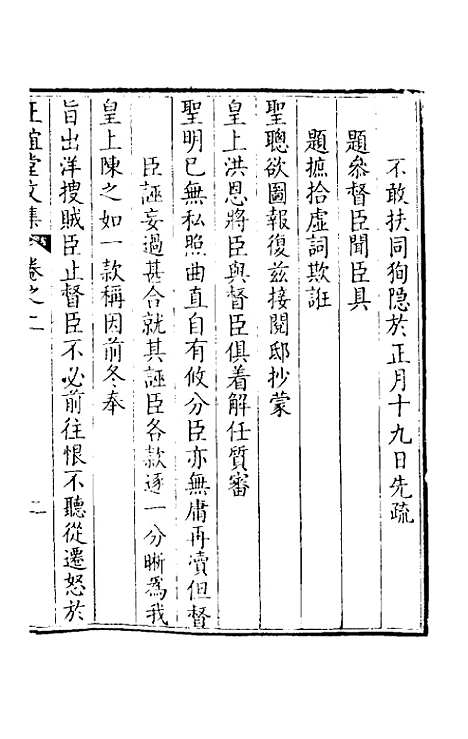 不敢扶同狥隐於正月十九日先疏
題叅督臣聞臣具
題摭拾虛詞欺誑
聖聰欲圖報復兹接閱邸抄蒙
皇上洪恩將臣與督臣俱着解任質審
聖明已無私照曲直自有攸分臣亦無庸再瀆但督
臣誣妄過甚合就其誣臣各款逐一分晰爲我
皇上陳之如一款稱因前冬奉
旨出洋搜賊臣止督臣不必前往恨不聽從遷怒於
正誼堂文集
卷之二
二